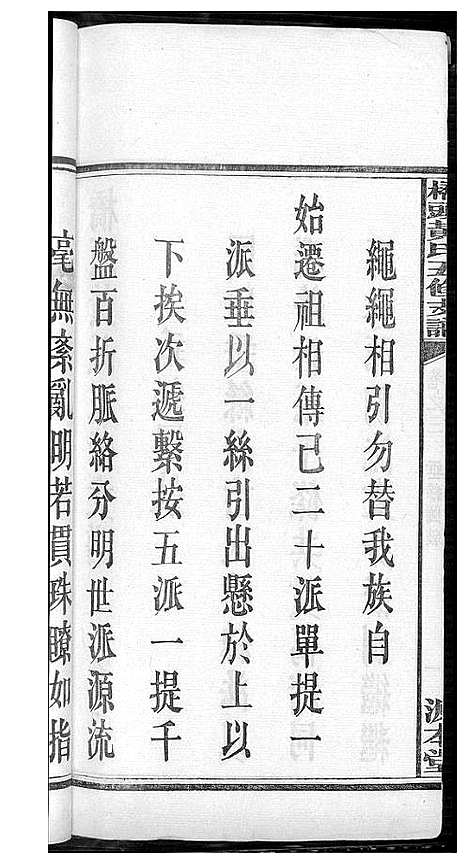 橋頭黃氏五修支譜
源本堂
繩繩相引勿替我族自
始遷祖相傳已二十派單提一
派垂以一絲引出懸於上以
下挨次遞繫按五派一提千
盤百折脈絡分明世派源流
毫無紊亂明若貫珠瞭如指